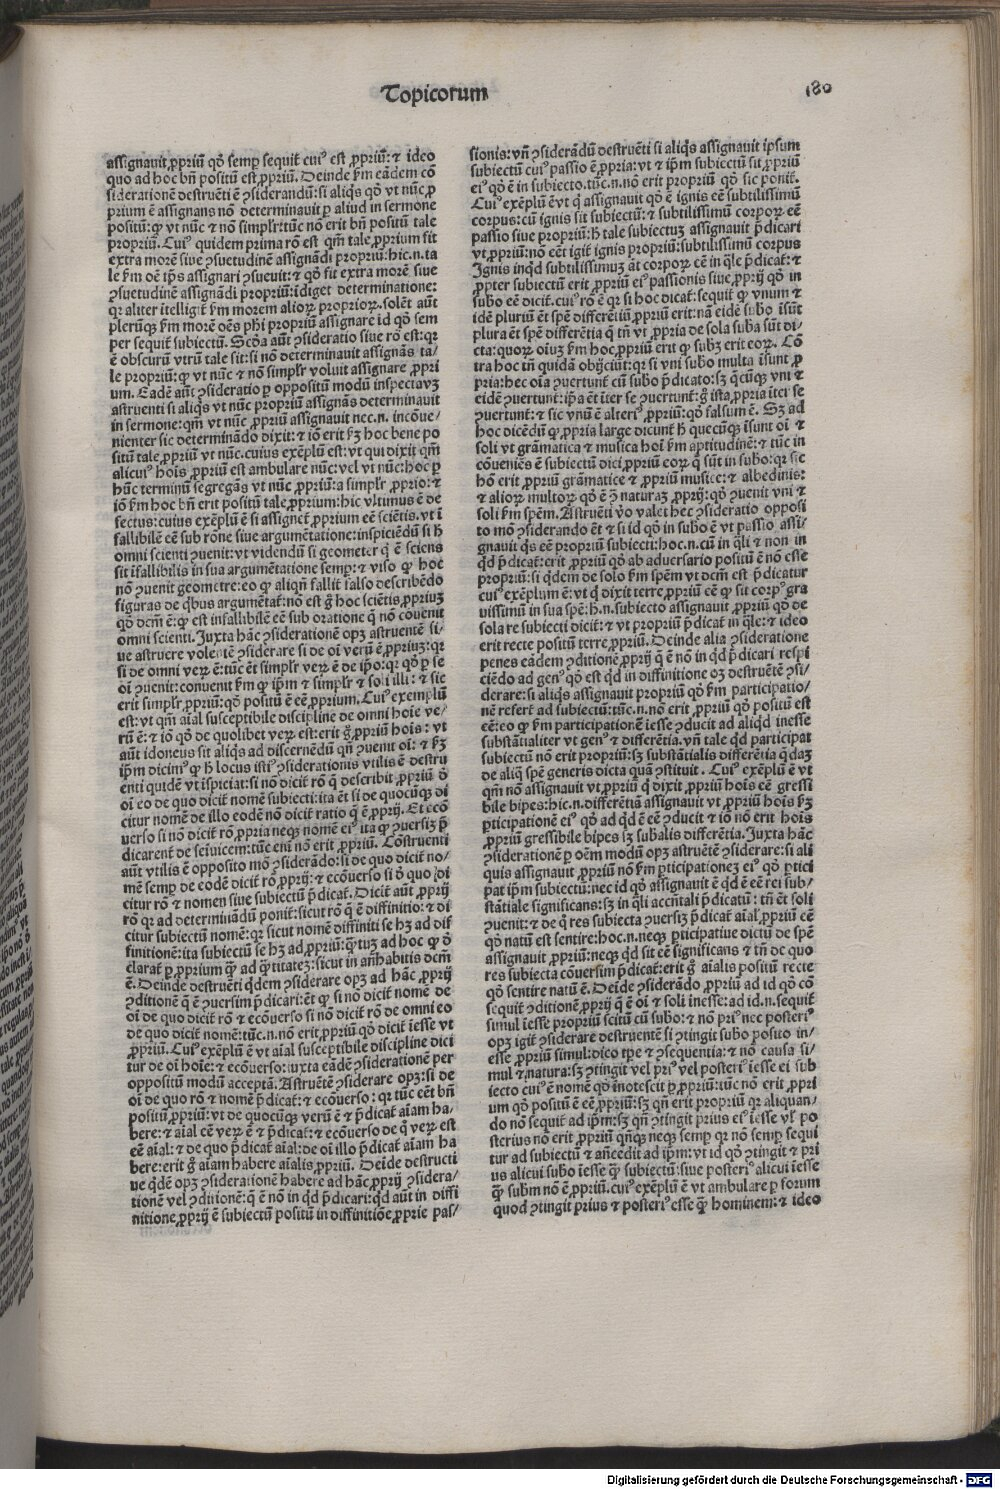 Topicorum
180
assignauit ꝓpriũ qð semꝑ sequit̃ cuiꝰ est ꝓpriũ: ⁊ ideo
quo ad hoc bñ positũ est ꝓpriũ. Deinde ẜm eãdem cõ
siderationẽ destruẽti ẽ ꝯsiderandũ: si aliq̃s qð vt nũc ꝓ
prium ẽ assignans nõ determinauit ꝑ aliud in sermone
positũ: ꝙ vt nũc ⁊ nõ simplr̃: tũc nõ erit bñ positũ tale
propriũ. Cuiꝰ quidem prima rõ est qm̃ tale ꝓprium fit
extra morẽ siue ꝯsuetudinẽ assignãdi propriũ: hic.n. ta
le ẜm oẽ ip̃s assignari ꝯsueuit: ⁊ qð fit extra morẽ siue
ꝯsuetudinẽ assignãdi propriũ: ĩdiget determinatione:
qr aliter ĩtelligit̃ ẜm morem alioꝝ proprioꝝ. solẽt aũt
plerũqꝫ ẜm morẽ oẽs phi propriũ assignare id qð sem
per sequit̃ subiectũ. Scða aũt ꝯsideratio siue rõ est: qr
ẽ obscurũ vtrũ tale sit: si nõ determinauit assignãs ta/
le propriũ: ꝙ vt nũc ⁊ nõ simplr̃ voluit assignare ꝓpri
um. Eadẽ aũt ꝯsideratio ꝑ oppositũ modũ inspectaꝫ
astruenti si aliq̃s vt nũc propriũ assignãs determinauit
in sermone: qm̃ vt nũc ꝓpriũ assignauit nec.n. incõue/
nienter sic determinãdo dixit: ⁊ iõ erit ẜꝫ hoc bene po
sitũ tale ꝓpriũ vt nũc. cuius exẽplũ est: vt qui dixit qm̃
alicuiꝰ hoĩs ꝓpriũ est ambulare nũc: vel vt nũc: hoc ꝑ
hũc terminũ segregãs vt nũc ꝓpriũ: a simplr̃ ꝓprio: ⁊
iõ ẜm hoc bñ erit positũ tale ꝓprium: hic vltimus ẽ de
fectus: cuius exẽplũ ẽ si assignet̃ ꝓprium eẽ sciẽtis. vt ĩ
fallibilẽ eẽ sub rõne siue argumẽtatione: inspiciẽdũ si h̃
omni scienti ꝯuenit: vt videndũ si geometer q̃ ẽ sciens
sit ĩfallibilis in sua argumẽtatione semꝑ: ⁊ viso ꝙ hoc
nõ ꝯuenit geometre: eo ꝙ aliqñ fallit̃ falso describẽdo
figuras de q̃bus argumẽtat̃: nõ est g̃ hoc sciẽtis ꝓpriuꝫ
qð dcm̃ ẽ: ꝙ est infallibilẽ eẽ sub oratione q̃ nõ cõuenit
omni scienti. Juxta hãc ꝯsiderationẽ opꝫ astruentẽ si/
ue astruere volẽtẽ ꝯsiderare si de oĩ verũ ẽ ꝓpriuꝫ: qr
si de omni veꝝ ẽ: tũc ẽt simplr̃ veꝝ ẽ de ip̃o: qr qð ꝑ se
oĩ ꝯuenit: conuenit ẜm ꝙ ip̃m ⁊ simplr̃ ⁊ soli illi: ⁊ sic
erit simplr̃ ꝓpriũ: qð positũ ẽ eẽ ꝓprium. Cuiꝰ exemplũ
est: vt qm̃ aĩal susceptibile discipline de omni hoĩe ve/
rũ ẽ: ⁊ iõ qð de quolibet veꝝ est: erit g̃ ꝓpriũ hoĩs: vt
aũt idoneus sit aliq̃s ad discernẽdũ qñ ꝯuenit oĩ: ⁊ ẜꝫ
ip̃m dicimꝰ ꝙ h̃ locus istiꝰ ꝯsiderationis vtilis ẽ destru
enti quidẽ vt ĩspiciat: si nõ dicit̃ rõ q̃ describit̃ ꝓpriũ ð
oĩ eo de quo dicit̃ nomẽ subiecti: ita ẽt si de quocũqꝫ di
citur nomẽ de illo eodẽ nõ dicit̃ ratio q̃ ẽ ꝓprij. Et ecõ
uerso si nõ dicit̃ rõ ꝓpria neqꝫ nomẽ eiꝰ ita ꝙ ꝯuersiꝫ p̃
dicarent̃ de seĩuicem: tũc eni nõ erit ꝓpriũ. Cõstruenti
aũt vtilis ẽ opposito mõ ꝯsiderãdo: si de quo dicit̃ no/
mẽ semꝑ de eodẽ dicit̃ rõ ꝓprij: ⁊ ecõuerso si ð quo di
citur rõ ⁊ nomen siue subiectũ p̃dicat̃. Dicit̃ aũt ꝓprij
rõ qr ad determinãdũ ponit̃: sicut rõ q̃ ẽ diffinitio: ⁊ di
citur subiectũ nomẽ: qr sicut nomẽ diffiniti se hꝫ ad dif
finitionẽ: ita subiectũ se hꝫ ad ꝓpriũ: q̃tuꝫ ad hoc ꝙ ð
clarat̃ ꝑ ꝓprium q̃ꝫ ad q̃titateꝫ: sicut in añhabitis dcm̃
ẽ. Deinde destruẽti q̃dem ꝯsiderare opꝫ ad hãc ꝓprij
ꝯditionẽ q̃ ẽ ꝯuersim p̃dicari: ẽt ꝙ si nõ dicit̃ nomẽ de
oĩ de quo dicit̃ rõ ⁊ ecõuerso si nõ dicit̃ rõ de omni eo
de quo dicit̃ nomẽ: tũc.n. nõ erit ꝓpriũ qð dicit̃ ĩesse vt
ꝓpriũ. Cuiꝰ exẽplũ ẽ vt aĩal susceptibile discipline dici
tur de oĩ hoĩe: ⁊ ecõuerso: iuxta eãdẽ ꝯsiderationẽ per
oppositũ modũ acceptã. Astruẽtẽ ꝯsiderare opꝫ: si de
oĩ de quo rõ ⁊ nomẽ p̃dicat̃: ⁊ ecõuerso: qr tũc eẽt bñ
positũ ꝓpriũ: vt de quocũqꝫ verũ ẽ ⁊ p̃dicat̃ aĩam ha/
bere: ⁊ aĩal eẽ veꝝ ẽ ⁊ p̃dicat̃: ⁊ ecõuerso de q̃ veꝝ est
eẽ aĩal: ⁊ de quo p̃dicat̃ aĩal: de oĩ illo p̃dicat̃ aĩam ha
bere: erit g̃ aĩam habere aĩalis ꝓpriũ. Deĩde destructi
ue q̃dẽ opꝫ ꝯsiderationẽ habere ad hãc ꝓprij ꝯsidera/
tionẽ vel ꝯditionẽ: q̃ ẽ nõ in qd p̃dicari: qd aũt in diffi
nitione ꝓprij ẽ subiectũ positũ in diffinitiõe ꝓprie pas/
sionis: vñ ꝯsiderãdũ destruẽti si aliq̃s assignauit ip̃sum
subiectũ cuiꝰ passio ẽ ꝓpria: vt ⁊ ip̃m subiectũ sit ꝓpriũ
eiꝰ qð ẽ in subiecto. tũc.n. nõ erit propriũ qð sic ponit̃.
Cuiꝰ exẽplũ ẽ vt q̃ assignauit qð ẽ ignis eẽ subtilissimũ
corpus: cũ ignis sit subiectũ: ⁊ subtilissimũ corpoꝝ eẽ
passio siue propriũ: h̃ tale subiectuꝫ assignauit p̃dicari
vt ꝓpriũ: nõ eẽt igit̃ ignis propriũ: subtilissimũ corpus
Ignis inq̃d subtilissimuꝫ ãt corpoꝝ eẽ in q̃le p̃dicat̃: ⁊
ꝓpter subiectũ erit ꝓpriũ eiꝰ passionis siue ꝓprij qð in
subo eẽ dicit̃. cuiꝰ rõ ẽ qr si hoc dicat̃: sequit̃ ꝙ vnum ⁊
idẽ pluriũ ẽt spẽ differẽtiũ ꝓpriũ erit: nã eidẽ subo ĩsũt
plura ẽt spẽ differẽtia q̃ tñ vt ꝓpria de sola suba sũt di/
cta: quoꝝ oĩuꝫ ẜm hoc ꝓpriũ erit ꝙ subꝫ erit eoꝝ. Cõ
tra hoc tñ quidã obijciũt: qr si vni subo multa ĩsunt ꝓ
pria: hec oĩa ꝯuertunt̃ cũ subo p̃dicato: sꝫ q̃cũqꝫ vni ⁊
eidẽ ꝯuertunt̃: ip̃a ẽt ĩter se ꝯuertunt̃: g̃ ista ꝓpria ĩter se
ꝯuertunt̃: ⁊ sic vnũ ẽ alteriꝰ ꝓpriũ: qð falsum ẽ. Sꝫ ad
hoc dicẽdũ ꝙ ꝓpria large dicunt̃ h̃ quecũqꝫ ĩsunt oĩ ⁊
soli vt grãmatica ⁊ musica hoĩ ẜm aptitudinẽ: ⁊ tũc in
cõueniẽs ẽ subiectũ dici ꝓpriũ eoꝝ q̃ sũt in subo: qr sic
hõ erit ꝓpriũ grãmatice ⁊ ꝓpriũ musice: ⁊ albedinis:
⁊ alioꝝ multoꝝ qð ẽ ꝯ̃ naturaꝫ ꝓprij: qð ꝯuenit vni ⁊
soli ẜm spẽm. Astruẽti ṽo valet hec ꝯsideratio opposi
to mõ ꝯsiderando ẽt ⁊ si id qð in subo ẽ vt passio assi/
gnauit q̃s eẽ propriũ subiecti: hoc.n. cũ in q̃li ⁊ non in
qd p̃dicat̃: erit ꝓpriũ qð ab aduersario positũ ẽ nõ esse
propriũ: si q̃dem de solo ẜm spẽm vt dcm̃ est p̃dicatur
cuiꝰ exẽplum ẽ: vt q̃ dixit terre ꝓpriũ eẽ ꝙ sit corpꝰ gra
uissimũ in sua spẽ: h.n. subiecto assignauit ꝓpriũ qð de
sola re subiecti dicit̃: ⁊ vt propriũ p̃dicat̃ in q̃le: ⁊ ideo
erit recte positũ terre ꝓpriũ. Deinde alia ꝯsideratione
penes eãdem ꝯditionẽ ꝓprij q̃ ẽ nõ in qd p̃dicari respi
ciẽdo ad genꝰ qð est qd in diffinitione oꝫ destruẽtẽ ꝯsi/
derare: si aliq̃s assignauit propriũ qð ẜm participatio/
nẽ refert̃ ad subiectũ: tũc.n. nõ erit ꝓpriũ qð positũ est
eẽ: eo ꝙ ẜm participationẽ ĩesse ꝯducit ad aliq̃d inesse
substãtialiter vt genꝰ ⁊ differẽtia. vñ tale qd participat
subiectũ nõ erit propriũ: sꝫ substãtialis differẽtia q̃daꝫ
de aliq̃ spẽ generis dicta quã ꝯstituit. Cuiꝰ exẽplũ ẽ vt
qm̃ nõ assignauit vt ꝓpriũ q̃ dixit ꝓpriũ hoĩs eẽ gressi
bile bipes: hic.n. differẽtiã assignauit vt ꝓpriũ hoĩs ẜꝫ
ꝑticipationẽ eiꝰ qð ad qd ẽ eẽ ꝯducit ⁊ iõ nõ erit hoĩs
ꝓpriũ gressibile bipes sꝫ sub̃alis differẽtia. Juxta hãc
ꝯsiderationẽ ꝑ oẽm modũ opꝫ astruẽtẽ ꝯsiderare: si ali
quis assignauit ꝓpriũ nõ ẜm ꝑticipationeꝫ eiꝰ qð ꝑtici
pat ip̃m subiectũ: nec id qð assignauit ẽ qd ẽ eẽ rei sub/
stãtiale significans: sꝫ in q̃li accñtali p̃dicatũ: tñ ẽt soli
ꝯuenit: ⁊ de q̃ res subiecta ꝯuersiꝫ p̃dicat̃ aĩal ꝓpriũ eẽ
qð natũ est sentire: hoc.n. neqꝫ ꝑticipatiue dictũ de spẽ
assignauit ꝓpriũ: neqꝫ qd sit eẽ significans ⁊ tñ de quo
res subiecta cõuersim p̃dicat̃: erit g̃ aĩalis positũ recte
qð sentire natũ ẽ. Deĩde ꝯsiderãdo ꝓpriũ ad id qð cõ
sequit̃ ꝯditionẽ ꝓprij q̃ ẽ oĩ ⁊ soli inesse: ad id.n. sequit̃
simul ĩesse propriũ scitũ cũ subo: ⁊ nõ priꝰ nec posteriꝰ
opꝫ igit̃ ꝯsiderare destruentẽ si ꝯtingit subo posito in/
esse ꝓpriũ simul: dico tꝑe ⁊ ꝯsequentia: ⁊ nõ causa si/
mul ⁊ natura: sꝫ ꝯtingit vel priꝰ vel posteriꝰ ĩesse ei sub
iecto cuiꝰ ẽ nomẽ qð ĩnotescit ꝑ ꝓpriũ: tũc nõ erit ꝓpri
um qð positũ ẽ eẽ ꝓpriũ: sꝫ qñ erit propriũ qr aliquan/
do nõ sequit̃ ad ip̃m: sꝫ qñ ꝯtingit prius eiꝰ ĩesse vl̃ po
sterius nõ erit ꝓpriũ qñqꝫ neqꝫ semꝑ qr nõ semꝑ sequi
tur ad subiectũ ⁊ añcedit ad ip̃m: vt id qð ꝯtingit ⁊ pri
us alicui subo ĩesse q̃ꝫ subiectũ: siue posteriꝰ alicui ĩesse
q̃ꝫ subm̃ nõ ẽ ꝓpriũ. cuiꝰ exẽplũ ẽ vt ambulare ꝑ forum
quod ꝯtingit prius ⁊ posteriꝰ esse q̃ꝫ hominem: ⁊ ideo
Digitalisierung gefördert durch die Deutsche Forschungsgemeinschaft - DFG